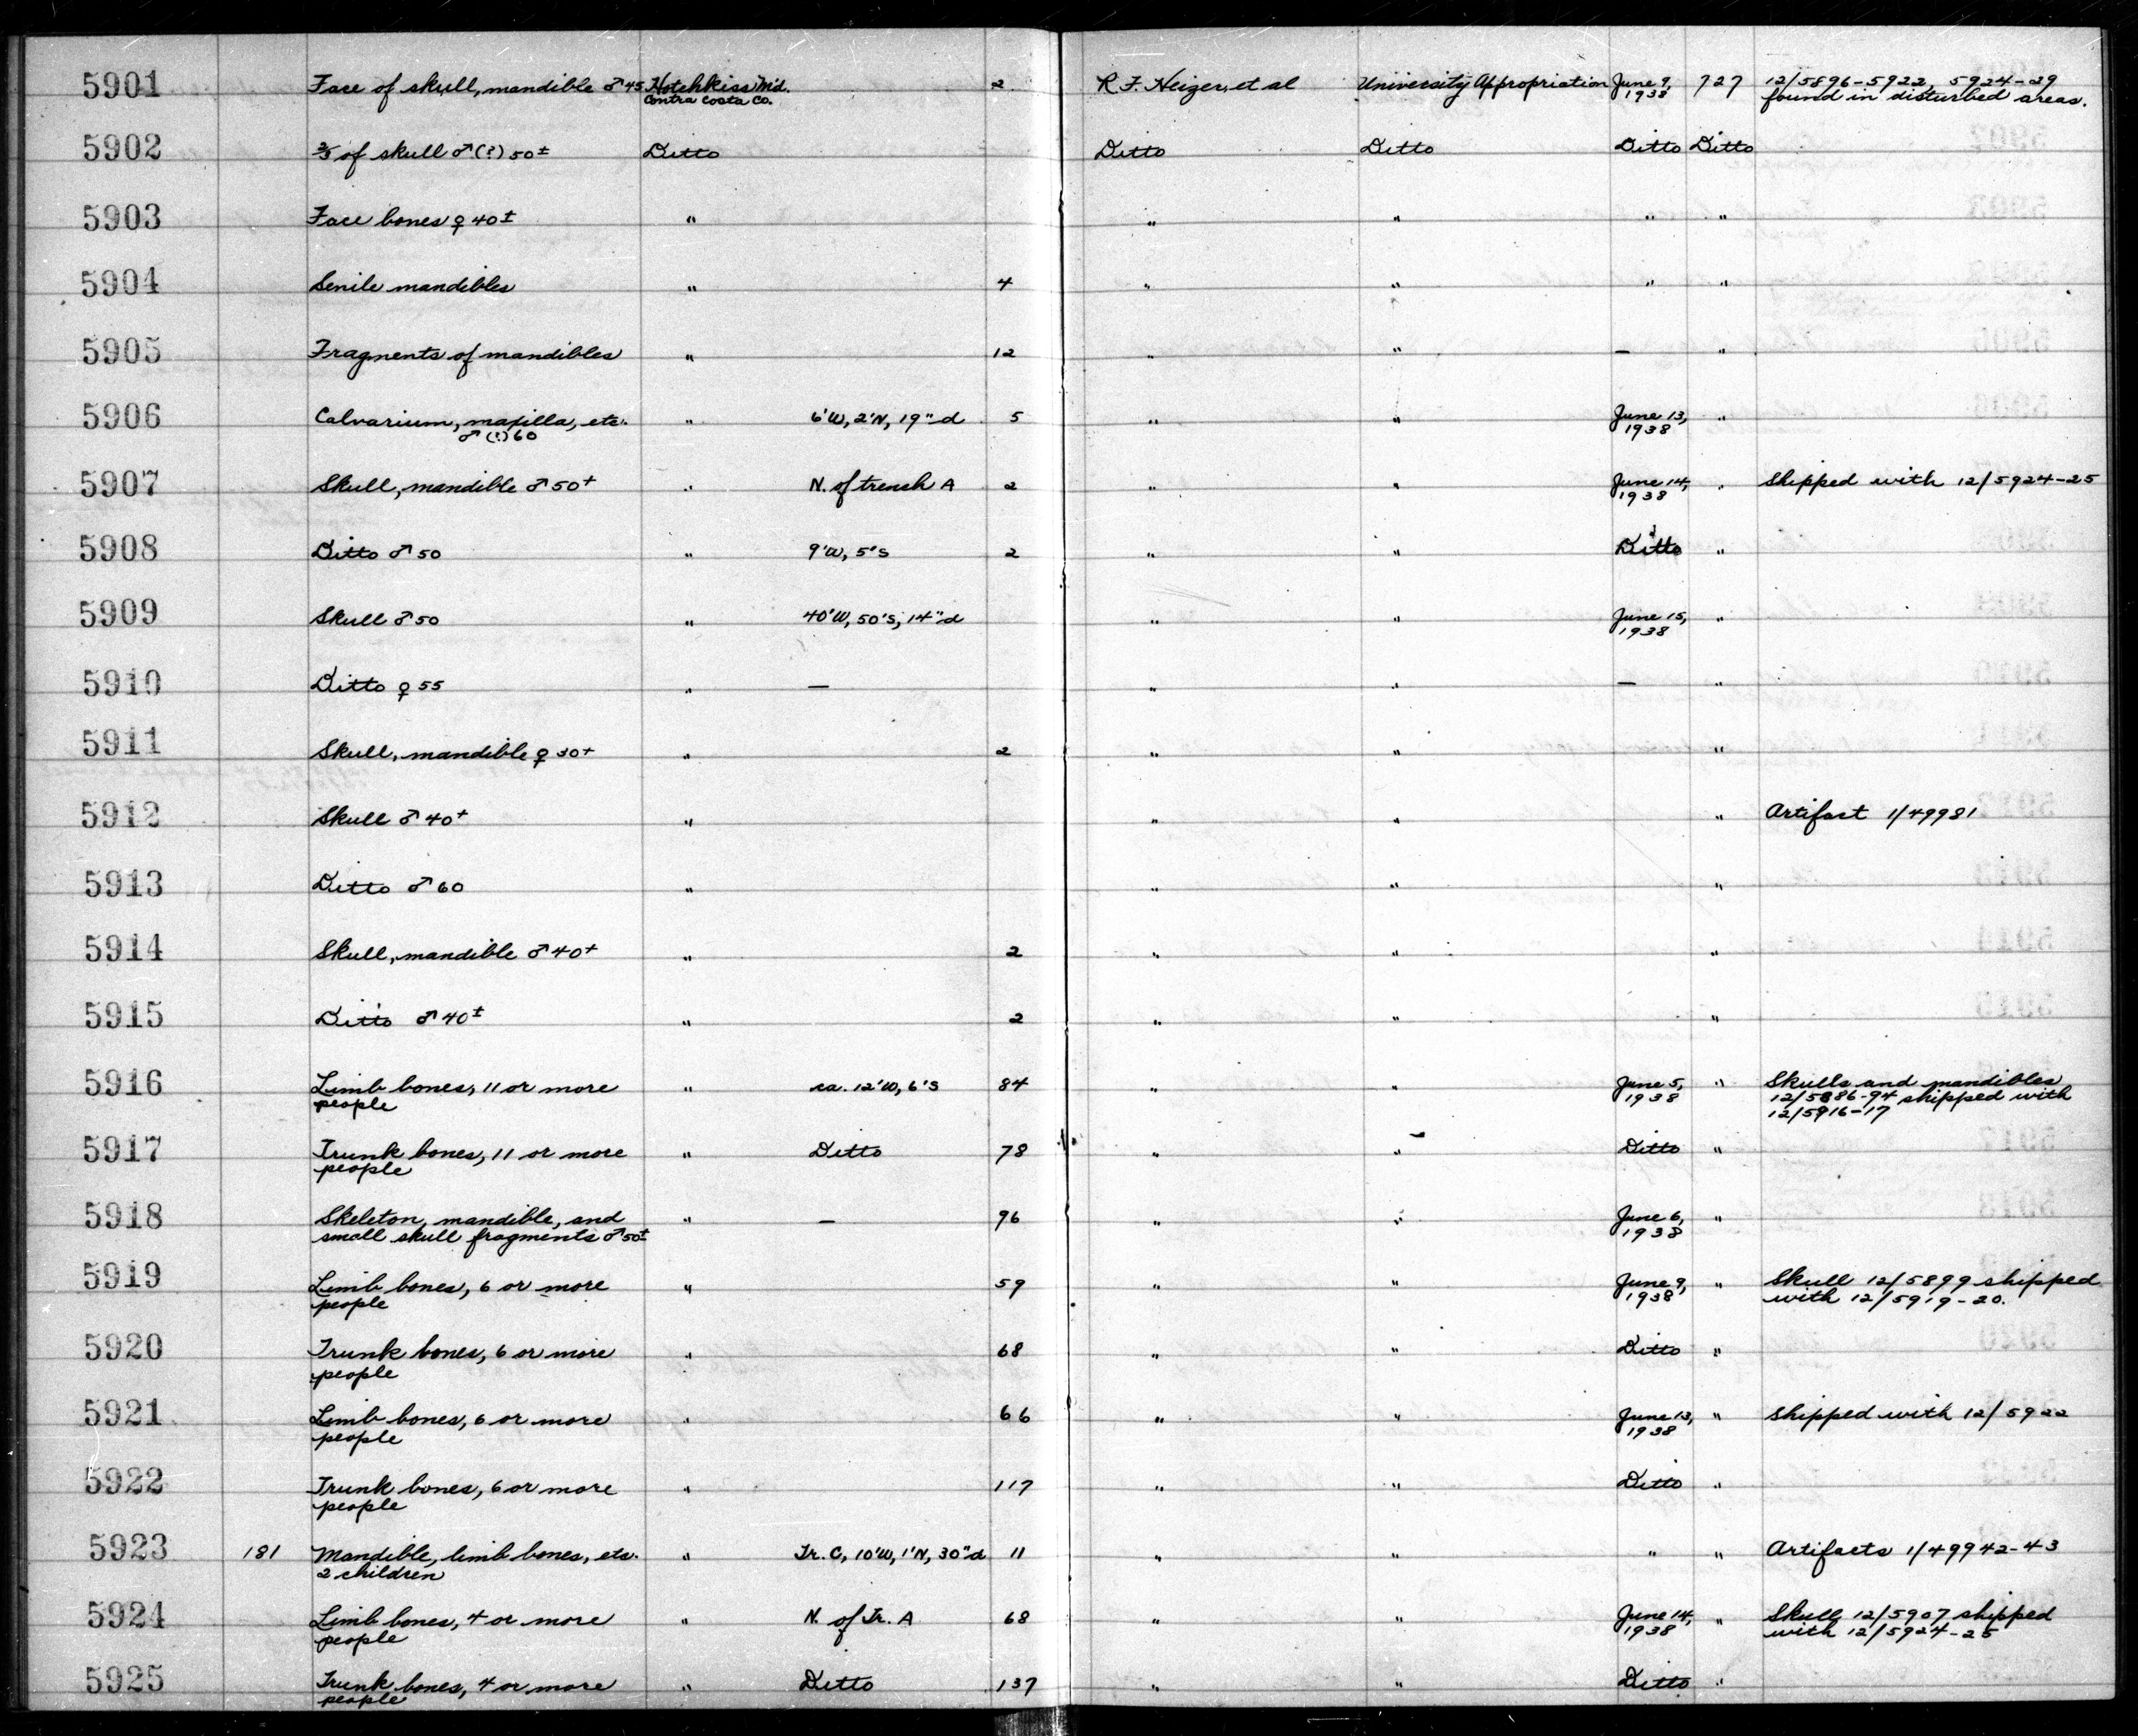 5901 Face of skull, mandible ♂ 45 Hotchkiss M'd. 2 R. F. Heizer, et al University Appropriation June 9, 727 12/5896-5922, 5924-29
Contra Costa Co. 1938 found in disturbed areas.
5902 ⅔ of skull ♂ (?) 50± Ditto Ditto Ditto Ditto Ditto
5903 Face bones ♀ 40± " " " " "
5904 Senile mandibles " 4 " " " "
5905 Fragments of mandibles " 12 " " — "
5906 Calvarium, maxilla, etc. " 6'W, 2'N, 19"d 5 " " June 13, "
♂ (?) 60 1938
5907 Skull, mandible ♂ 50+ " N. of trench A 2 " " June 14, " Shipped with 12/5924-25
1938
5908 Ditto ♂ 50 " 9'W, 5'S 2 " " Ditto "
5909 Skull ♂ 50 " 40'W, 50'S, 14"d " " June 15, "
1938
5910 Ditto ♀ 55 " — " " — "
5911 Skull, mandible ♀ 30+ " 2 " " "
5912 Skull ♂ 40+ " " " " Artifact 1/49981
5913 Ditto ♂ 60 " " " "
5914 Skull, mandible ♂ 40+ " 2 " " "
5915 Ditto ♂ 40± " 2 " " "
5916 Limb bones, 11 or more " ca. 12'W, 6'S 84 " " June 5, " Skulls and mandibles
people 1938 12/5886-94 shipped with
12/5916-17
5917 Trunk bones, 11 or more " Ditto 78 " " Ditto "
people
5918 Skeleton, mandible, and " — 96 " " June 6, "
small skull fragments ♂ 50± 1938
5919 Limb bones, 6 or more " 59 " " June 9, " Skull 12/5899 shipped
people 1938 with 12/5919-20.
5920 Trunk bones, 6 or more " 68 " " Ditto "
people
5921 Limb bones, 6 or more " 66 " " June 13, " Shipped with 12/5922
people 1938
5922 Trunk bones, 6 or more " 117 " " Ditto "
people
5923 181 Mandible, limb bones, etc. " Tr. C, 10'W, 1'N, 30"d 11 " " " " Artifacts 1/49942-43
2 children
5924 Limb bones, 4 or more " N. of Tr. A 68 " " June 14, " Skull 12/5907 shipped
people 1938 with 12/5924-25
5925 Trunk bones, 4 or more " Ditto 137 " " Ditto "
people